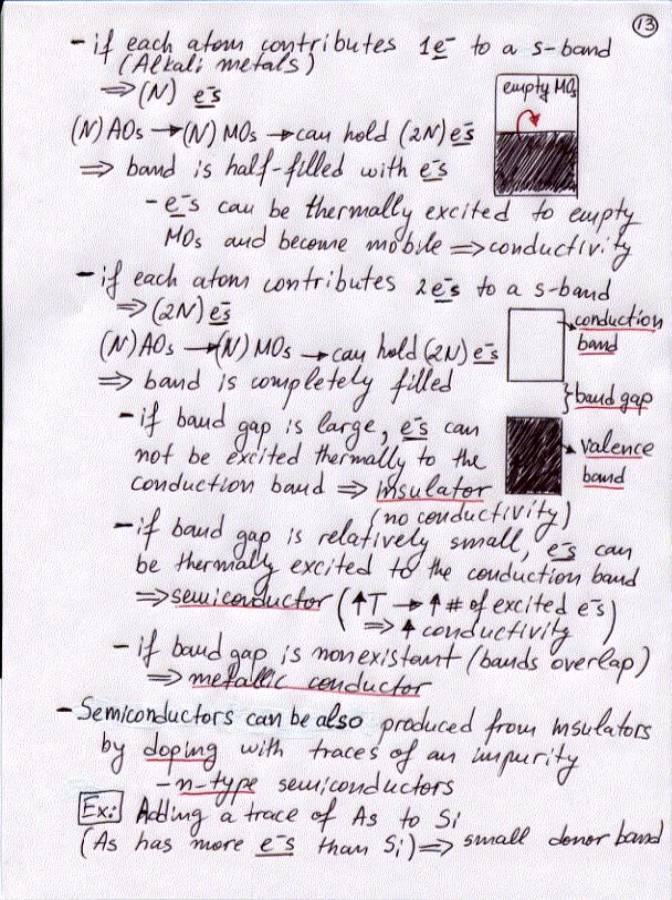 13
- if each atom contributes 1e⁻ to a s-band
(Alkali metals)
⇒ (N) e⁻s
empty MOs
(N) AOs → (N) MOs → can hold (2N) e⁻s
⇒ band is half-filled with e⁻s
- e⁻s can be thermally excited to empty
MOs and become mobile ⇒ conductivity
- if each atom contributes 2e⁻s to a s-band
⇒ (2N) e⁻s
conduction
band
(N) AOs → (N) MOs → can hold (2N) e⁻s
⇒ band is completely filled
} band gap
- if band gap is large, e⁻s can
not be excited thermally to the
valence
band
conduction band ⇒ insulator
(no conductivity)
- if band gap is relatively small, e⁻s can
be thermally excited to the conduction band
⇒ semiconductor (↑T → ↑ # of excited e⁻s)
⇒ ↑ conductivity
- if band gap is nonexistant (bands overlap)
⇒ metallic conductor
- Semiconductors can be also produced from insulators
by doping with traces of an impurity
- n-type semiconductors
Ex: Adding a trace of As to Si
(As has more e⁻s than Si) ⇒ small donor band